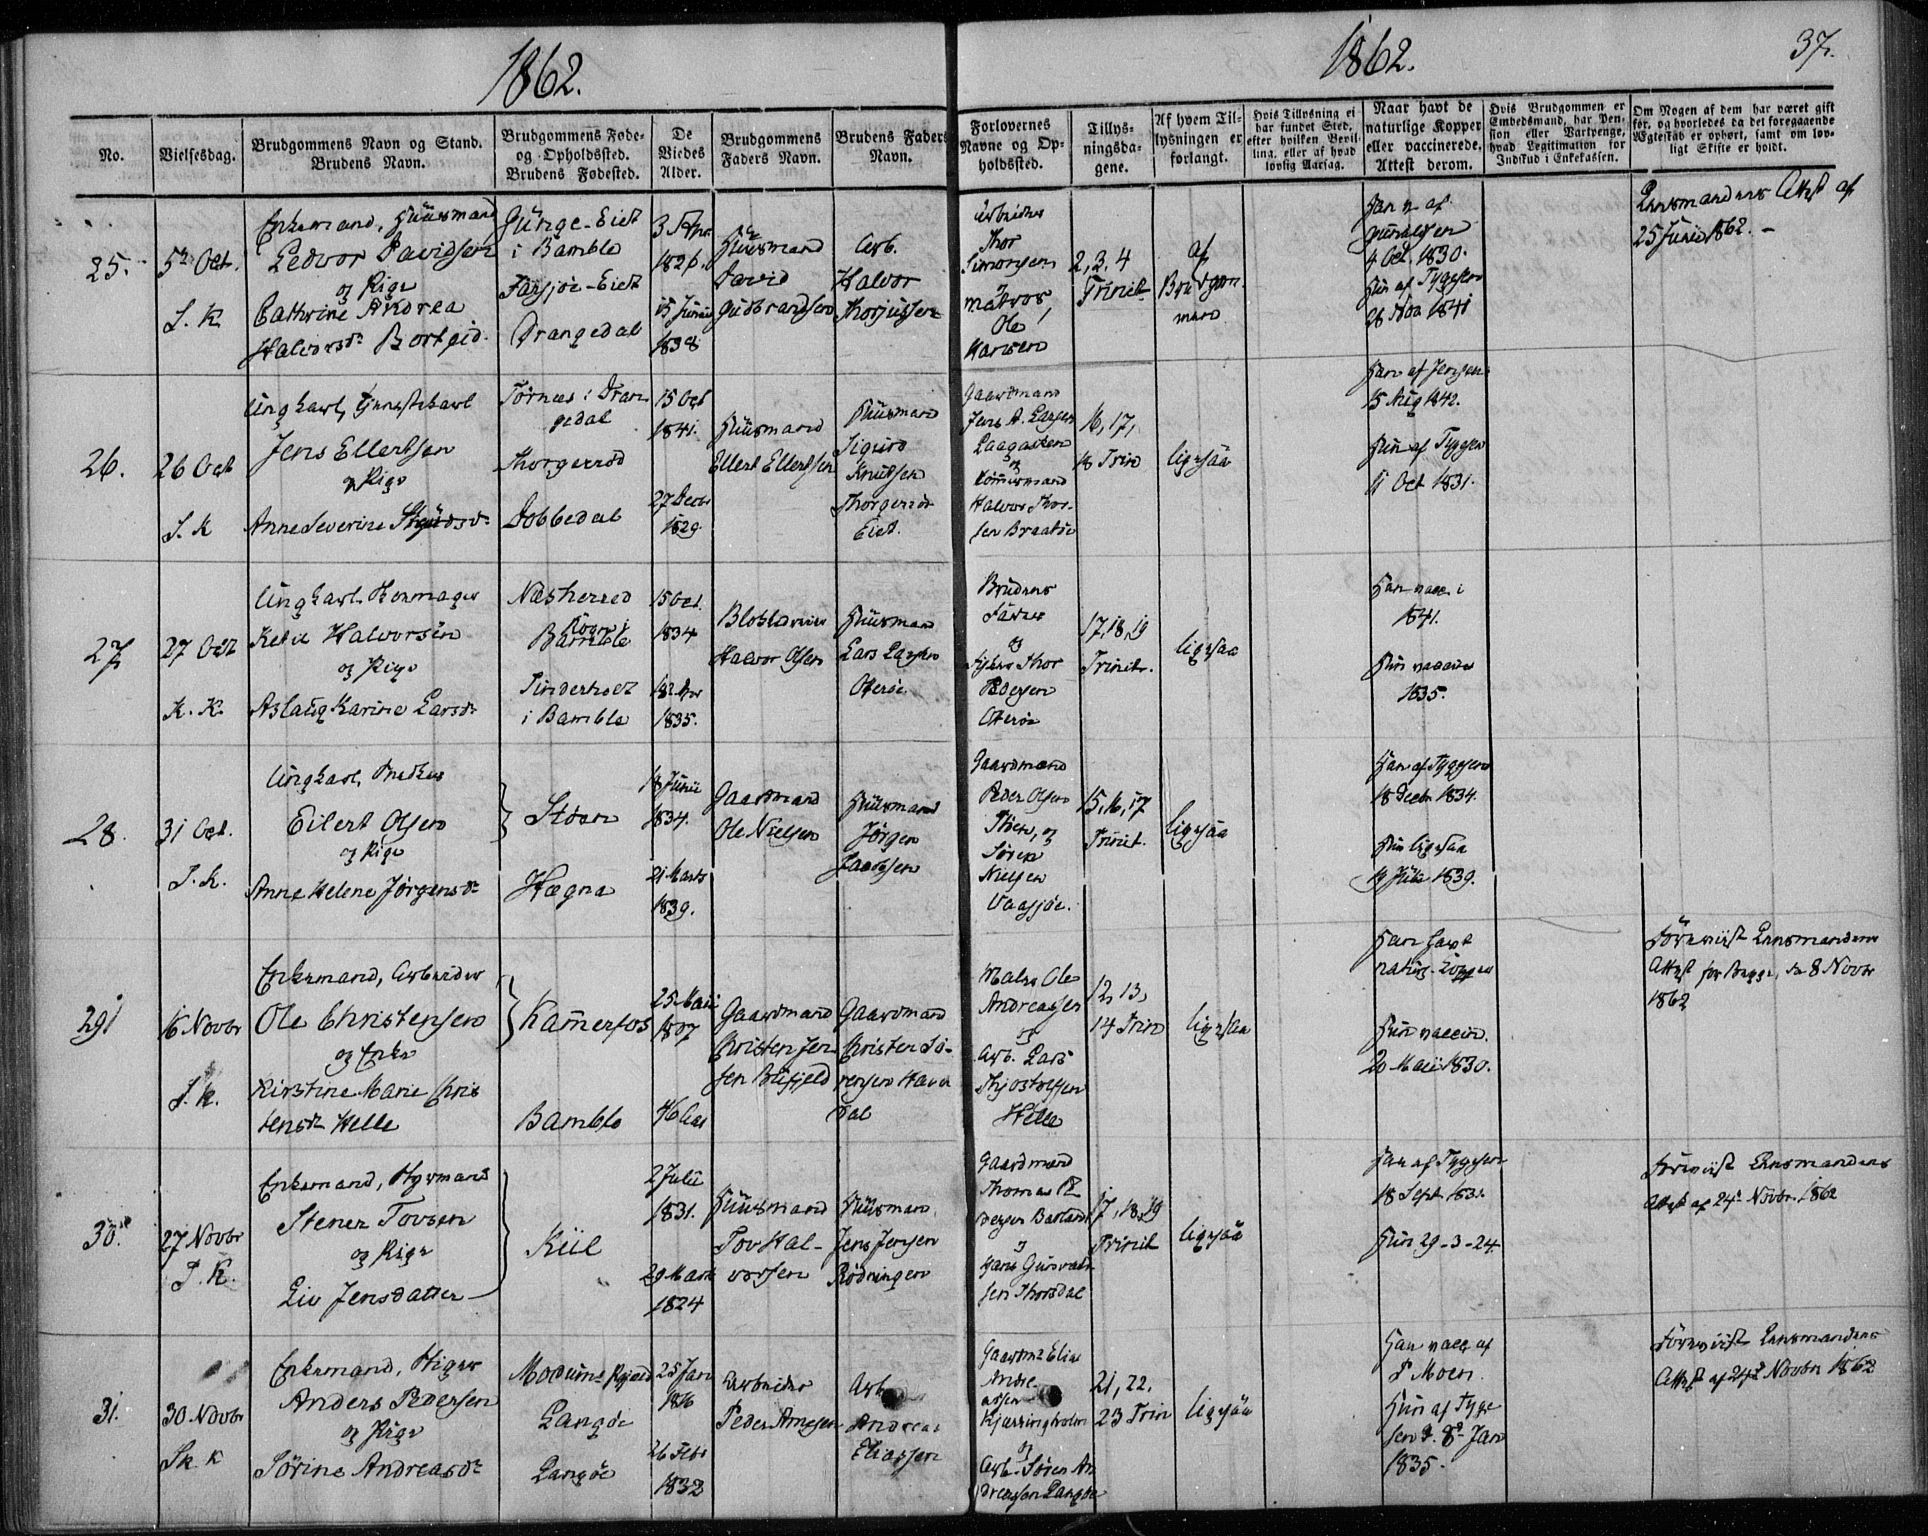 1862.
1862.
37.
No.
Vielsesdag.
Brudgommens Navn og Stand.
Brudens Navn.
Brudgommens Føde-
og Opholdssted.
Brudens Fødested.
De
Viedes
Alder.
Brudgommens
Faders Navn.
Brudens Faders
Navn.
Forlovernes
Navne og Op-
holdssted.
Tillys-
ningsda-
gene.
Af hvem Til-
lysningen er
forlangt.
Hvis Tillysning ei
har fundet Sted,
efter hvilken Bevil-
ling, eller af hvad
lovlig Aarsag.
Naar havt de
naturlige Kopper
eller vaccinerede.
Attest derom.
Hvis Brudgommen er
Embedsmand, har Pen-
sion eller Vartpenge,
hvad Legitimation for
Indskud i Enkekassen.
Om Nogen af dem har været gift
før, og hvorledes da det foregaaende
Ægteskab er ophørt, samt om lov-
ligt Skifte er holdt.
25.
5te Oct.
S. K.
Enkemand, Huusmand
Ledvor Davidsen
og Pige
Cathrine Andrea
Halvorsdr
i Bamble
Drangedal
1826.
15 Junii
1838
Huusmand
David
Gudbrandsen
Arb.
Halvor
Thorjussen
Arbeider
Thor
Simonsen
og
Matros
Ole
Hansen
2, 3, 4
Trinit.
af
Brudgom-
men
Han v. af
4 Oct. 1830.
Hun af Tygesen
26 Nov 1841
Lensmandens Attest af
25 Junii 1862. –
26.
26 Oct
S. K
Ungkarl, Tjenestekarl
Jens Ellertsen
og Pige
Anne Severine
Tørnes i Dran-
gedal
Dobbedal
15 Oct
1841.
27 Decbr
1829.
Huusmand
Ellert Ellertsen
Huusmand
Sigurd
Knudsen
Eiet.
Gaardmand
og
Halvor Thor-
sen Braatøe
16, 17,
18 Trin
ligesaa
Han af Jensen
15 Aug 1842.
Hun af Tygesen
11 Oct 1831.
27
27 Oct
K. K.
Ungkarl,
Halvorsen
og Pige
Aslaug Karine Larsdr
Næsherred
Bamble
i Bamble
15 Oct.
1834
1835.
Halvor Olsen
Huusmand
Lars Larsen
Oterøe
Brudens
Fader
og
Thor
Pedersen
Oterøe
17, 18, 19
Trinit.
ligesaa
Han vacc. i
1841.
Hun vaccin
1835.
28.
31 Oct.
S. K.
Ungkarl, Snedker
Eilert Olsen
og Pige
Anne Helene Jørgensdr
Støen
Hægna
18 Junii
1834.
21 Marts
1839.
Gaardmand
Ole Nielsen
Huusmand
Jørgen
Gaardmand
Peder Olsen
Støen, og
Søren
Nielsen
Vaasjøe.
15, 16, 17
Trinit.
ligesaa
Han af Tygesen
18 Decbr 1834.
Hun ligesaa
1839.
29
16 Novbr
S. K.
Enkemand, Arbeider
Ole Christensen
og Enke
Kirstine Marie Chris
tensdr Helle
Kammerfos
Bamble
25 Maii
1807
46 Aar
Gaardmand
Christen Jen-
sen Blifjeld
Gaardmand
Christen Sø-
rensen Haven
dal
Maler Ole
Andreassen
og
Arb. Lars
Thjostolfsen
Helle
12, 13,
14 Trin
ligesaa
Han havt
naturl. Kopper
Hun vaccin.
20 Maii 1830.
Foreviist Lensmandens
Attest for Begge, den 8 Novbr
1862
30.
27 Novbr
S. K.
Enkemand, Styrmand
Stener Tovsen
og Pige
Liv Jensdatter
Kiil
2 Julii
1831.
29 Marts
1824
Huusmand
Tov Hal-
vorsen
Huusmand
Jens Jensen
Rødningen
Gaardmand
Thomas Pe
dersen Barland
og
Hans Gunvald-
sen Thorsdal
17, 18, 19
Trinit
ligesaa
Han af Tygesen
18 Sept. 1831.
Hun 29-3-24
Foreviist Lensmandens
Attest af 24de Novbr. 1862
31.
30 Novbr
Sk. K
Enkemand,
Anders Pedersen
og Pige
Sørine Andreasdr
Langøe
Langøe
25 Jan
1816
26 Febr
1832
Arbeider
Peder Arnesen
Arb.
Andreas
Eliassen
Gaardmd Elias
Andre-
assen
Kjærringholm
og
Arb. Søren An
dreassen Langøe
21, 22.
23 Trin
ligesaa
Han vacc. af
P Moen.
Hun af Tyge
sen d. 8de Jan
1835.
Foreviist Lensmandens
Attest af 24de Novbr 1862